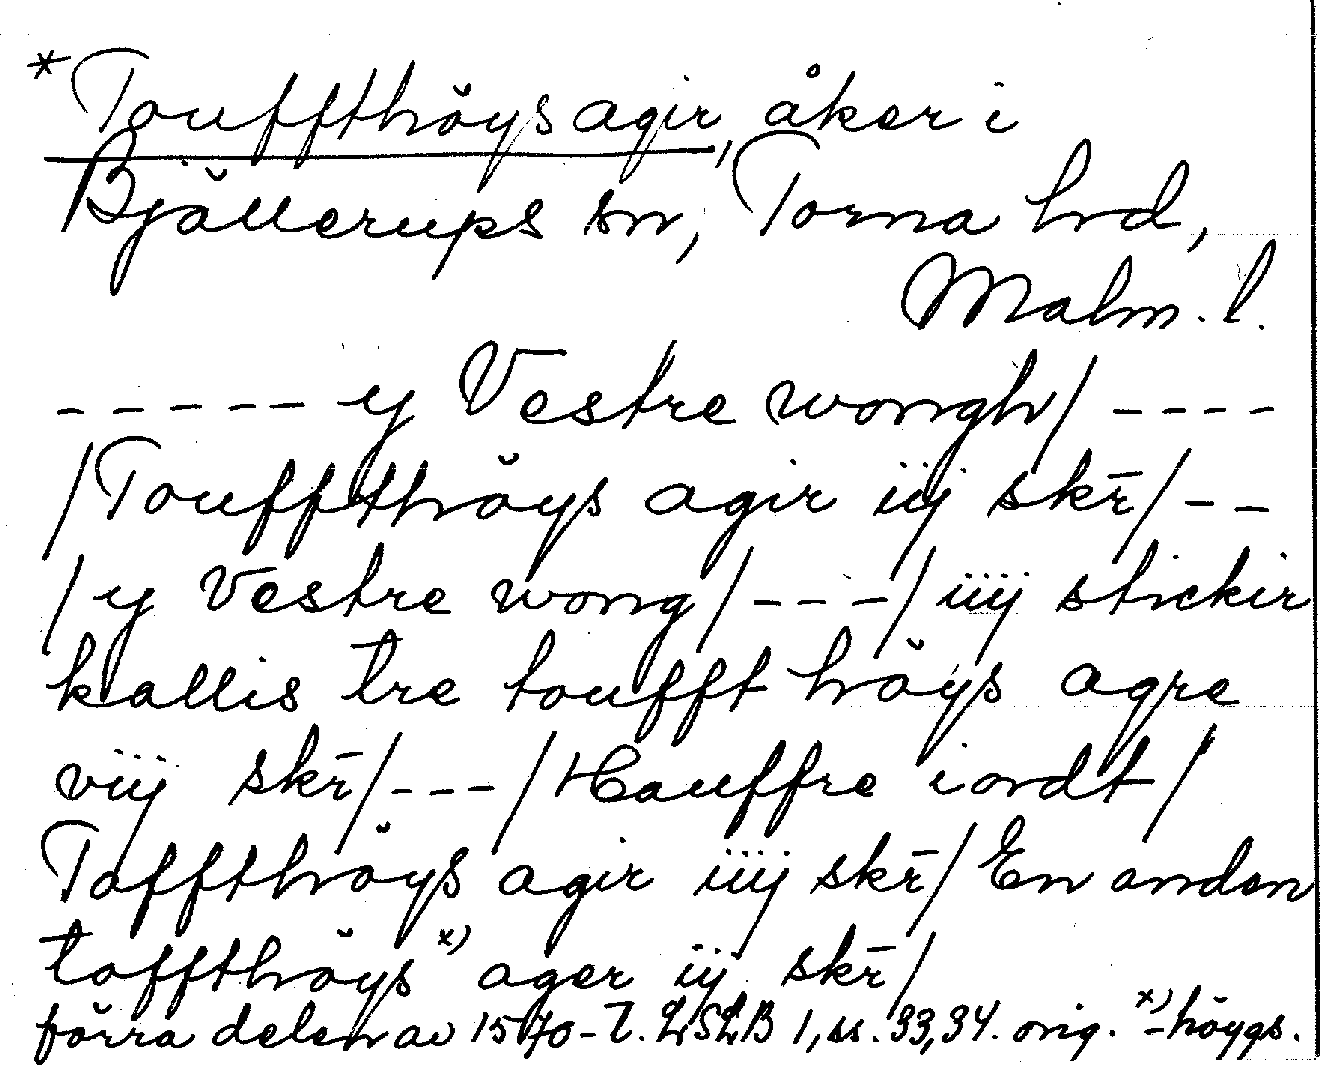 *Touffthöys agir, åker i
Bjällerups sn, Torna hrd,
Malm. l.
----- y Vestre wongh/ ----
/Touffthöys agir iij skr̄/ --
/y Vestre wong/ --- / iiij stickir
kallis tre toufft höys agre
viij skr̄/ --- / Hauffre iordt /
Toffthöys agir iiij skr̄/ En anden
toffthöys x) ager iij skr̄/
förra delen av 1570-t. LSLB 1, ss. 33, 34. orig. x) -höygs.